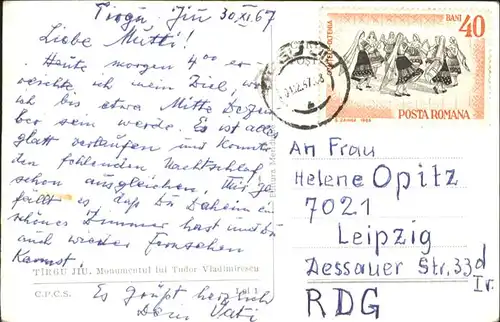 Tirgu Jiu 30.XI.67
Liebe Mutti!
Heute morgen 4⁰⁰ er-
reichte ich mein Ziel, wo
ich bis etwa Mitte Dezem
ber sein werde. Es ist alles
glatt verlaufen und konnte
den fehlenden Nachtschlaf
schon ausgleichen. Mir ge
fällt es, daß Du Daheim ein
schönes Zimmer hast und Du
auch wieder fernsehen
kannst.
TÎRGU JIU. Monumentul lui Tudor Vladimirescu
C.P.C.S.
1 lei 1
Es grüßt herzlich
Dein Vati
BANI 40
POSTA ROMANA
An Frau
Helene Opitz
7021
Leipzig
Dessauer Str. 33d
Ir.
RDG